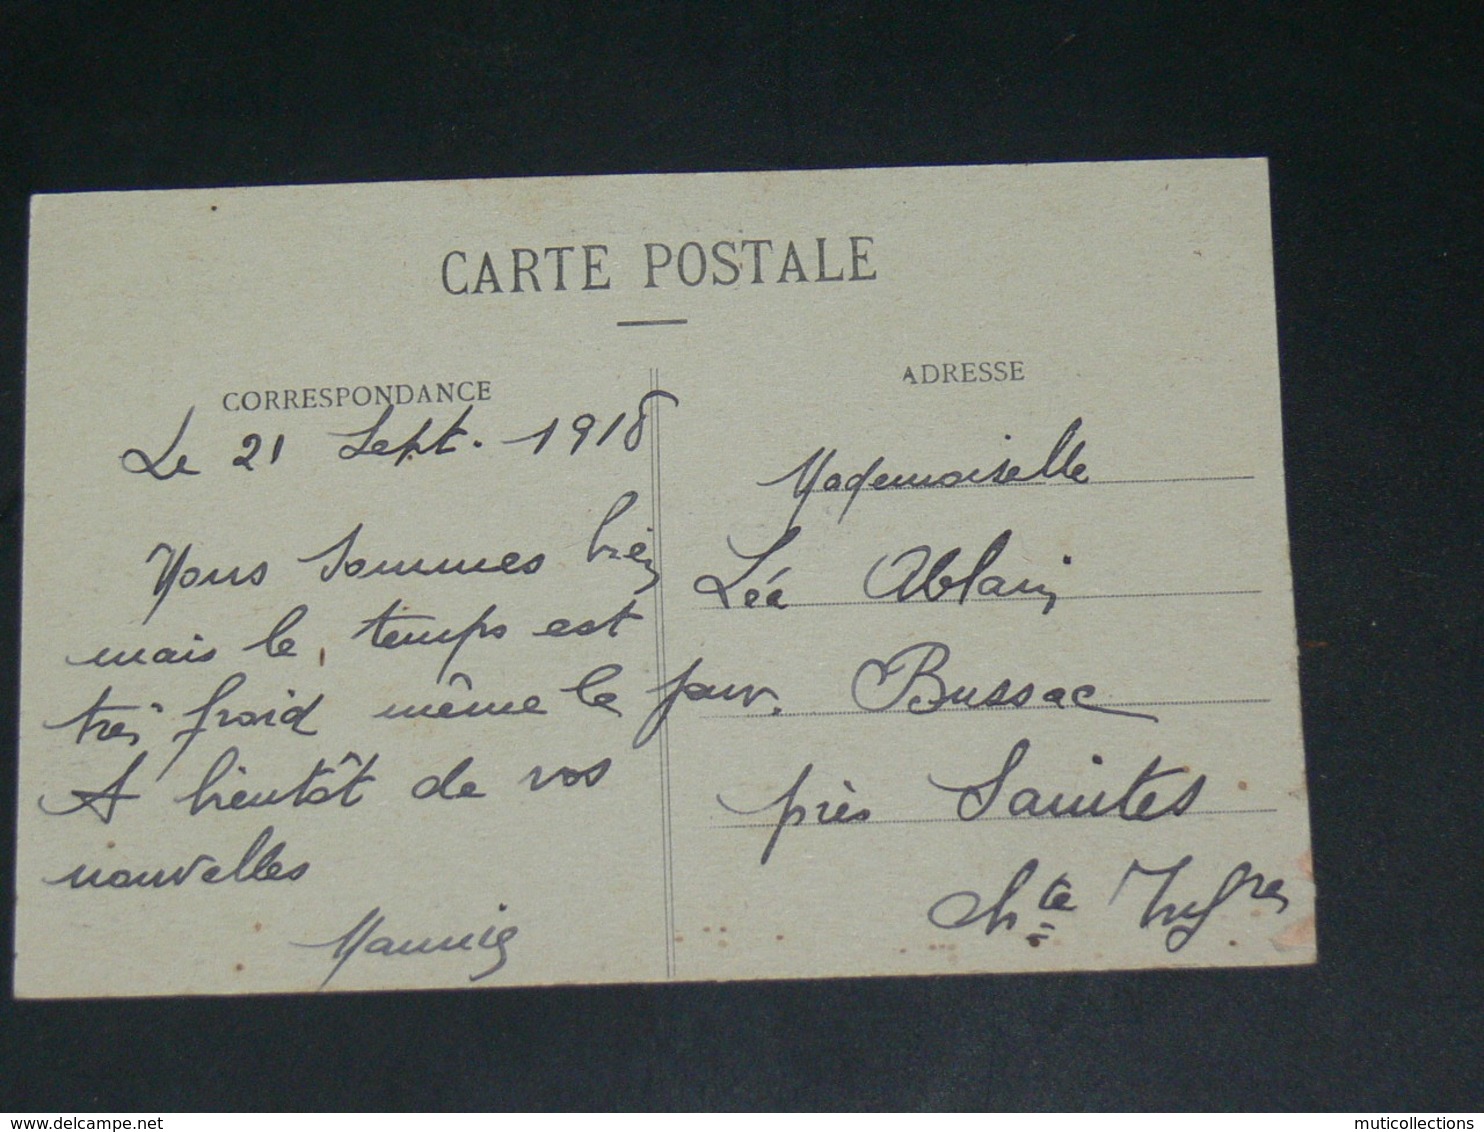 CARTE POSTALE
CORRESPONDANCE
Le 21 Sept. 1918
Nous sommes bien
mais le temps est
très froid même le jour.
A bientôt de vos
nouvelles
ADRESSE
Mademoiselle
Léa Ablain
Bussac
près Saintes
Chte Infre
delcampe.net
muticollections